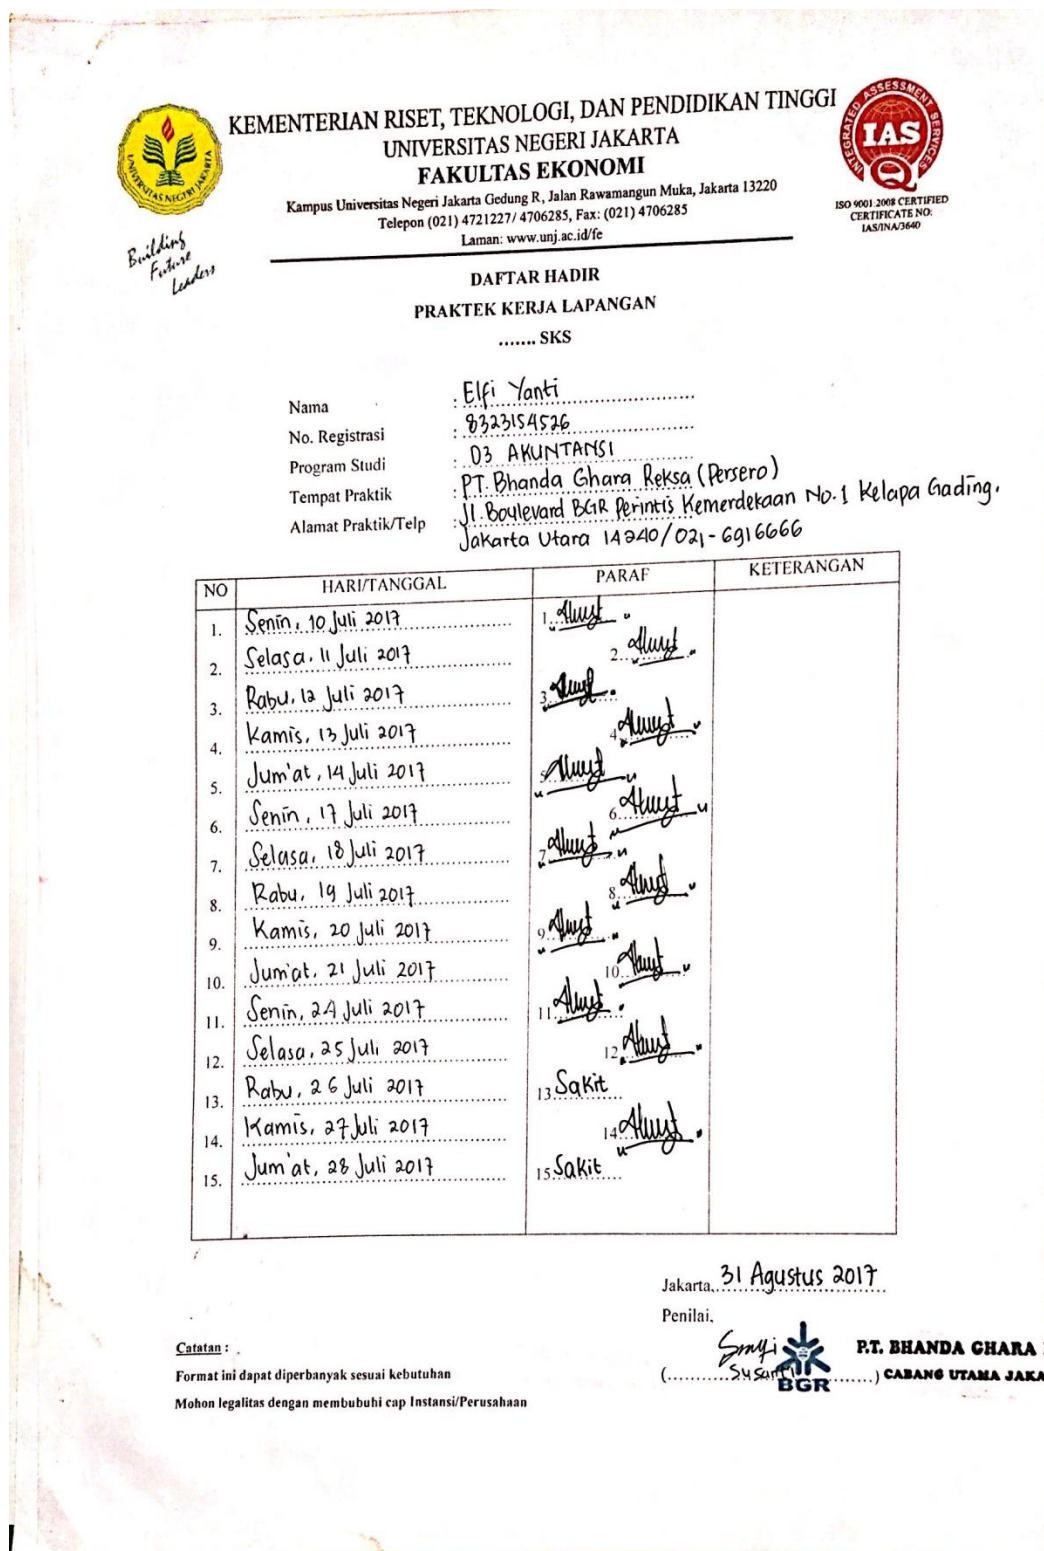 KEMENTERIAN RISET, TEKNOLOGI, DAN PENDIDIKAN TINGGI
UNIVERSITAS NEGERI JAKARTA
FAKULTAS EKONOMI
Kampus Universitas Negeri Jakarta Gedung R, Jalan Rawamangun Muka, Jakarta 13220
Telepon (021) 4721227/ 4706285, Fax: (021) 4706285
Laman: www.unj.ac.id/fe
UNIVERSITAS NEGERI JAKARTA
Building
Future
Leaders
INTEGRATED ASSESSMENT SERVICES
IAS
ISO 9001:2008 CERTIFIED
CERTIFICATE NO:
IAS/INA/3640
DAFTAR HADIR
PRAKTEK KERJA LAPANGAN
....... SKS
Nama : Elfi Yanti
No. Registrasi : 8323154526
Program Studi : D3 AKUNTANSI
Tempat Praktik : PT. Bhanda Ghara Reksa (Persero)
Alamat Praktik/Telp : Jl. Boulevard BGR Perintis Kemerdekaan No.1 Kelapa Gading.
Jakarta Utara 14240/021-6916666
NO HARI/TANGGAL PARAF KETERANGAN
1. Senin, 10 Juli 2017 1.
2. Selasa, 11 Juli 2017 2.
3. Rabu, 12 Juli 2017 3.
4. Kamis, 13 Juli 2017 4.
5. Jum'at, 14 Juli 2017 5.
6. Senin, 17 Juli 2017 6.
7. Selasa, 18 Juli 2017 7.
8. Rabu, 19 Juli 2017 8.
9. Kamis, 20 Juli 2017 9.
10. Jum'at, 21 Juli 2017 10.
11. Senin, 24 Juli 2017 11.
12. Selasa, 25 Juli 2017 12.
13. Rabu, 26 Juli 2017 13. Sakit
14. Kamis, 27 Juli 2017 14.
15. Jum'at, 28 Juli 2017 15. Sakit
Jakarta, 31 Agustus 2017
Penilai,
(...........Susanti...........)
BGR
P.T. BHANDA GHARA
CABANG UTAMA JAKA
Catatan :
Format ini dapat diperbanyak sesuai kebutuhan
Mohon legalitas dengan membubuhi cap Instansi/Perusahaan